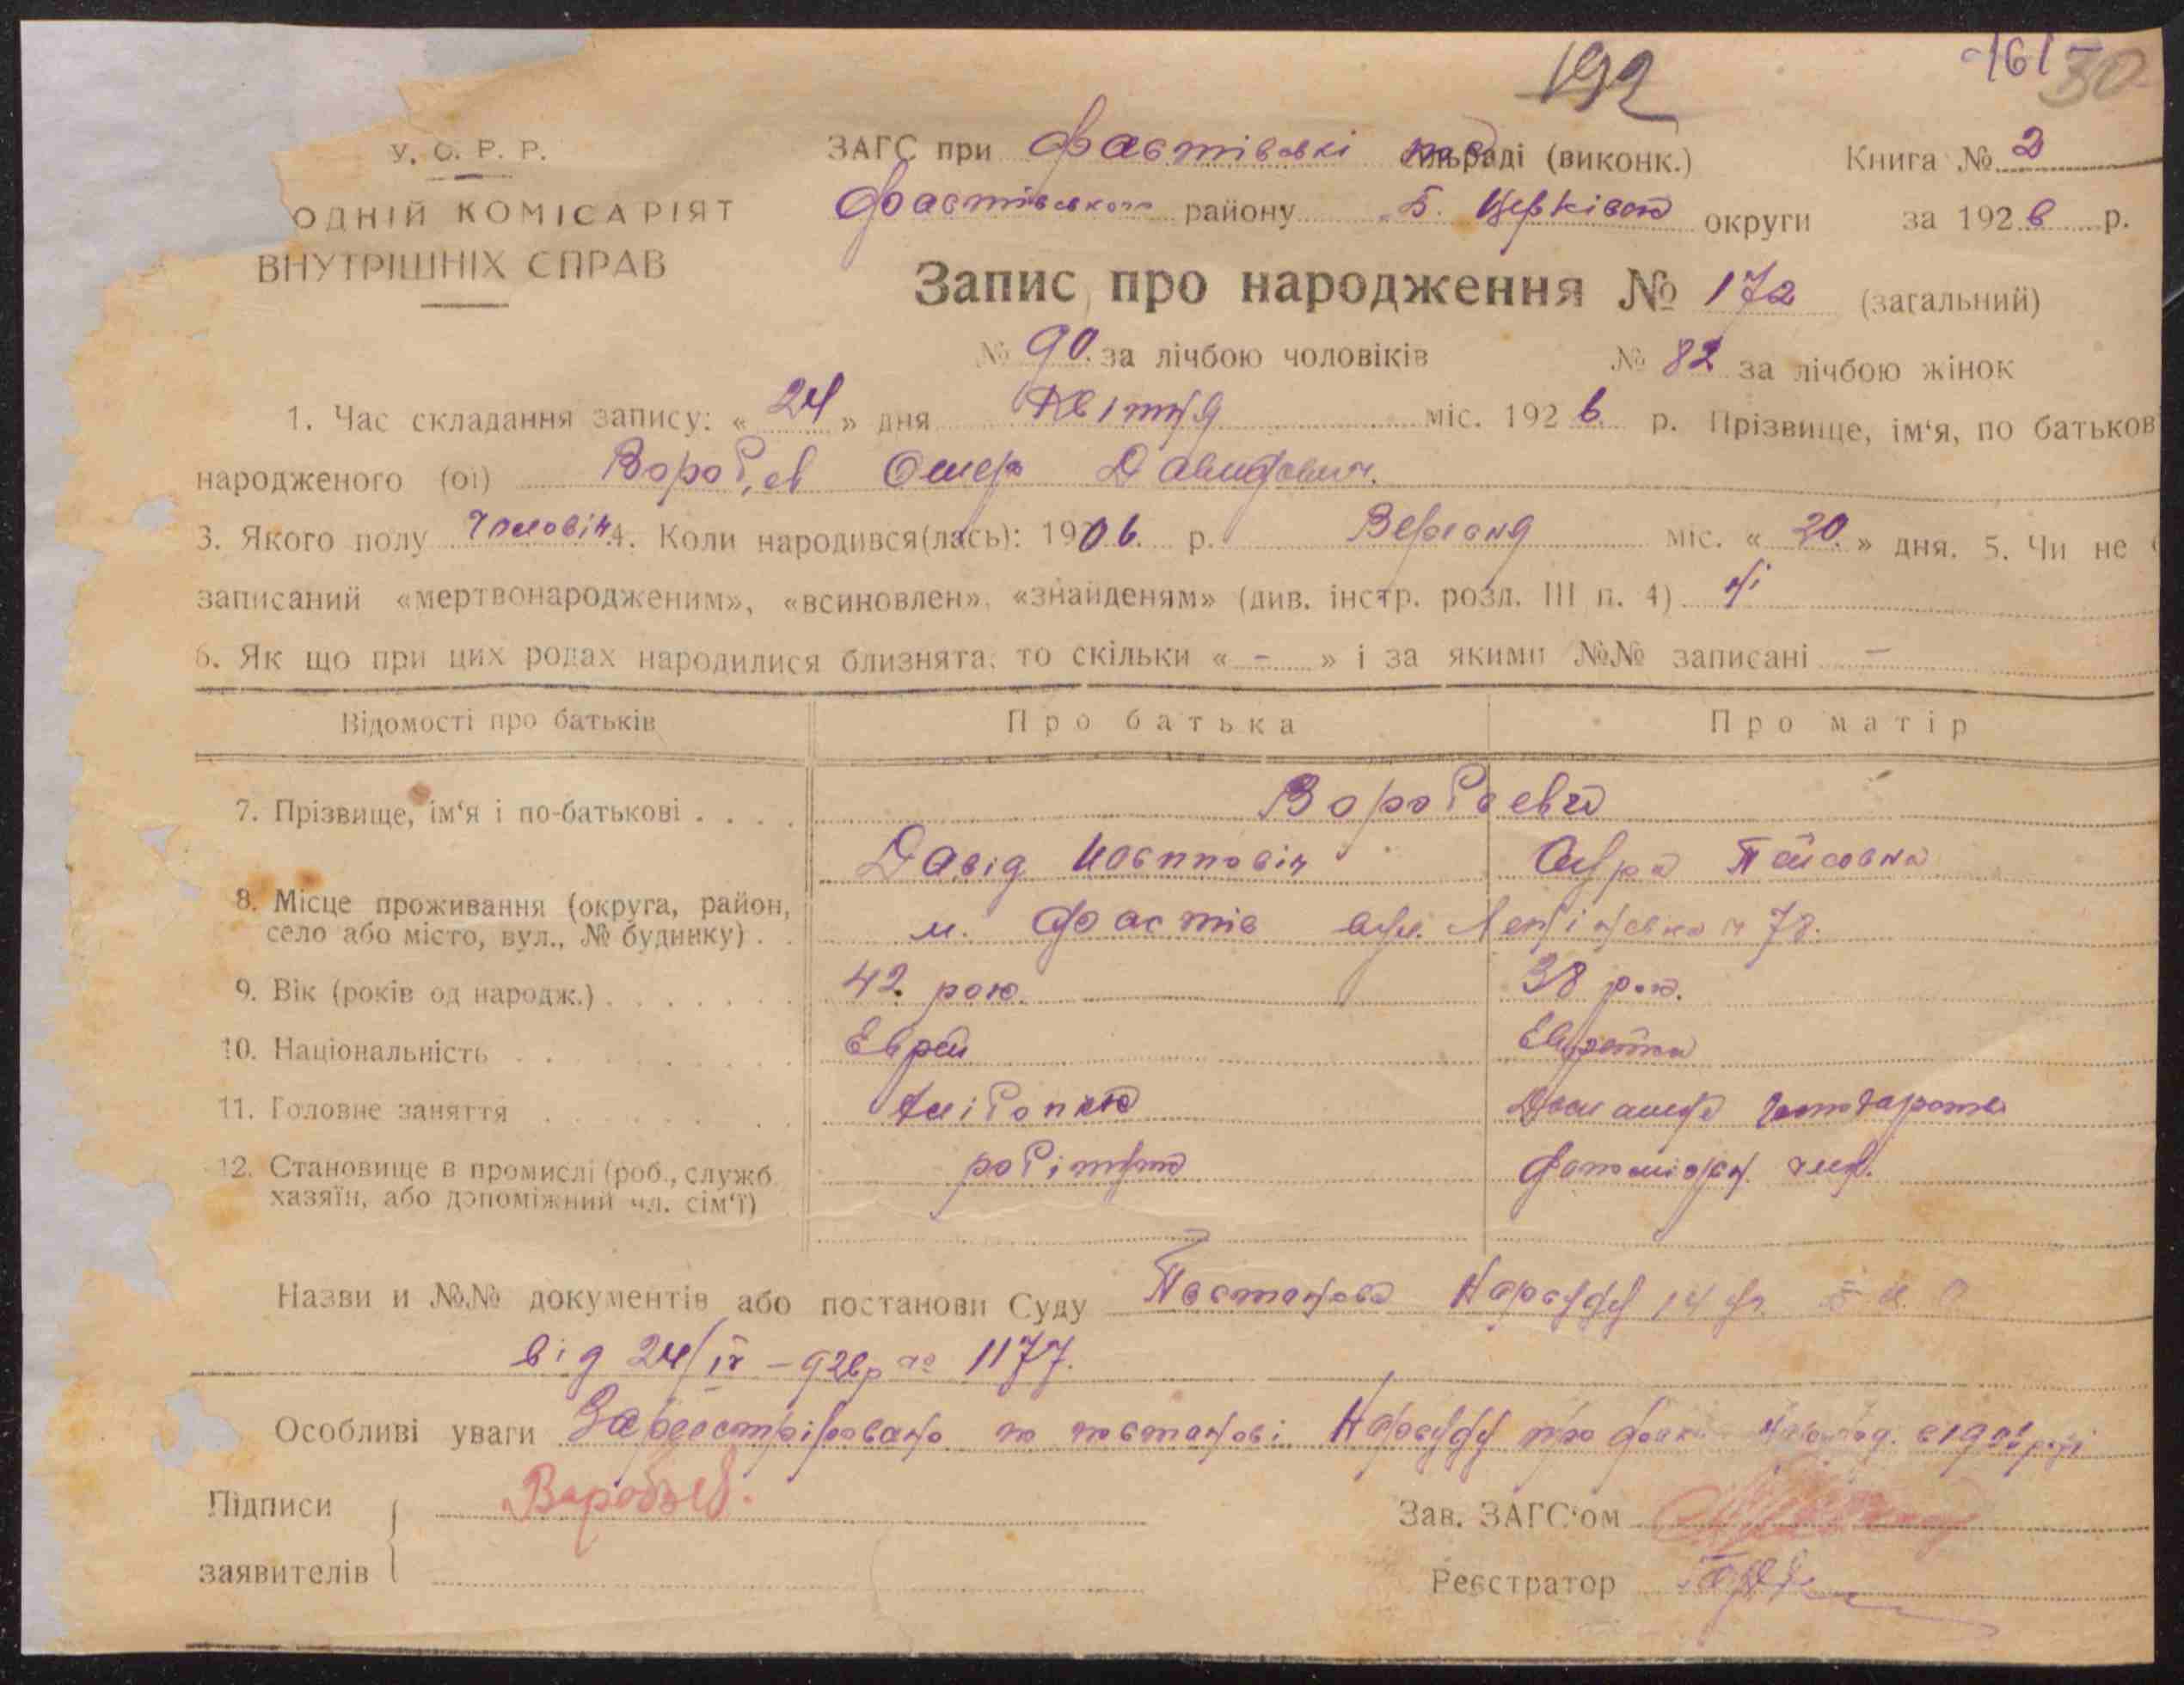 192
161
30
У. С. Р. Р.
ОДНІЙ КОМІСАРІЯТ
ВНУТРІШНІХ СПРАВ
ЗАГС при Фастівські раді (виконк.) Книга № 2
Фастівського району Б. Церківс округи за 1926 р.
Запис про народження № 172 (загальний)
№ 90. за лічбою чоловіків № 82 за лічбою жінок
1. Час складання запису: « 24 » дня Квітня міс. 1926. р. Прізвище, ім‘я, по батьков
народженого (ої) Вороб,ев Ошер Давидович.
3. Якого полу Чоловіч. 4. Коли народився(лась): 1906. р. Вересня міс. « 20. » дня. 5. Чи не
записаний «мертвонародженим», «всиновлен», «знайденям» (див. інстр. розд. III п. 4) ні
6. Як що при цих родах народилися близнята, то скільки « - » і за якими №№ записані —
Відомості про батьків Про батька Про матір
7. Прізвище, ім‘я і по-батькові . . . .
Давід Йосипповіч
8. Місце проживання (округа, район,
село або місто, вул., № будинку) . . м. Фастів вул. Ленінська № 78.
9. Вік (років од народж.) . . . . . . . 42. рок. 38 рок.
10. Національність . . . . . . Еврей Еврейка
11. Головне заняття . . . . . .
12. Становище в промислі (роб., служб.
хазяїн, або допоміжний чл. сім‘ї)
Назви и №№ документів або постанови Суду Постанова Нарсуду 14
від 24/IV - 926р № 1177.
Особливі уваги Зареестріровано по постанові Нарсуду про
Підписи Воробьев. Зав. ЗАГС‘ом
заявителів Реєстратор